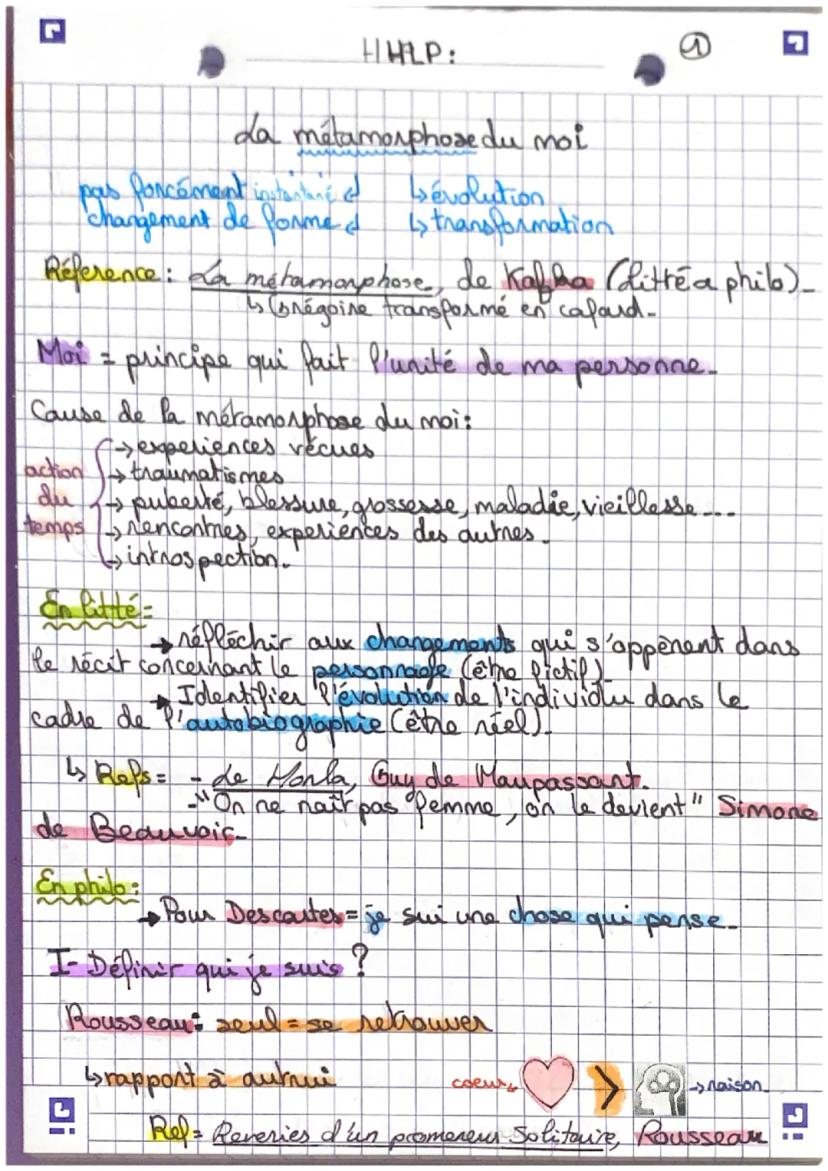 HHLP:
①
La métamorphose du moi
pas forcément instantané ↲ ↳ évolution
changement de forme ↲ ↳ transformation
Réference: La métamorphose, de Kafka (litté a philo).
↳ Grégoire transformé en cafard.
Moi = principe qui fait l'unité de ma personne.
Cause de la métamorphose du moi:
→ experiences vécues
action → traumatismes
du → puberté, blessure, grossesse, maladie, vieillesse...
temps → rencontres, experiences des autres.
→ introspection.
En litté:
→ réfléchir aux changements qui s'appèrent dans
le récit concernant le personnage (être fictif).
→ Identifier l'évolution de l'individu dans le
cadre de l'autobiographie (être réel).
↳ Refs = - Le Horla, Guy de Maupassant.
- "On ne naît pas femme, on le devient" Simone
de Beauvoir.
En philo:
→ Pour Descartes = je sui une chose qui pense.
I- Définir qui je suis ?
Rousseau: seul = se retrouver
↳ rapport à autrui coeur > → raison
Ref = Reveries d'un promeneur Solitaire, Rousseau